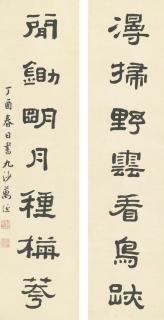 掃野雲看鳥跡
閒鋤朙月種梅荂
丁酉春日書九沙萬經